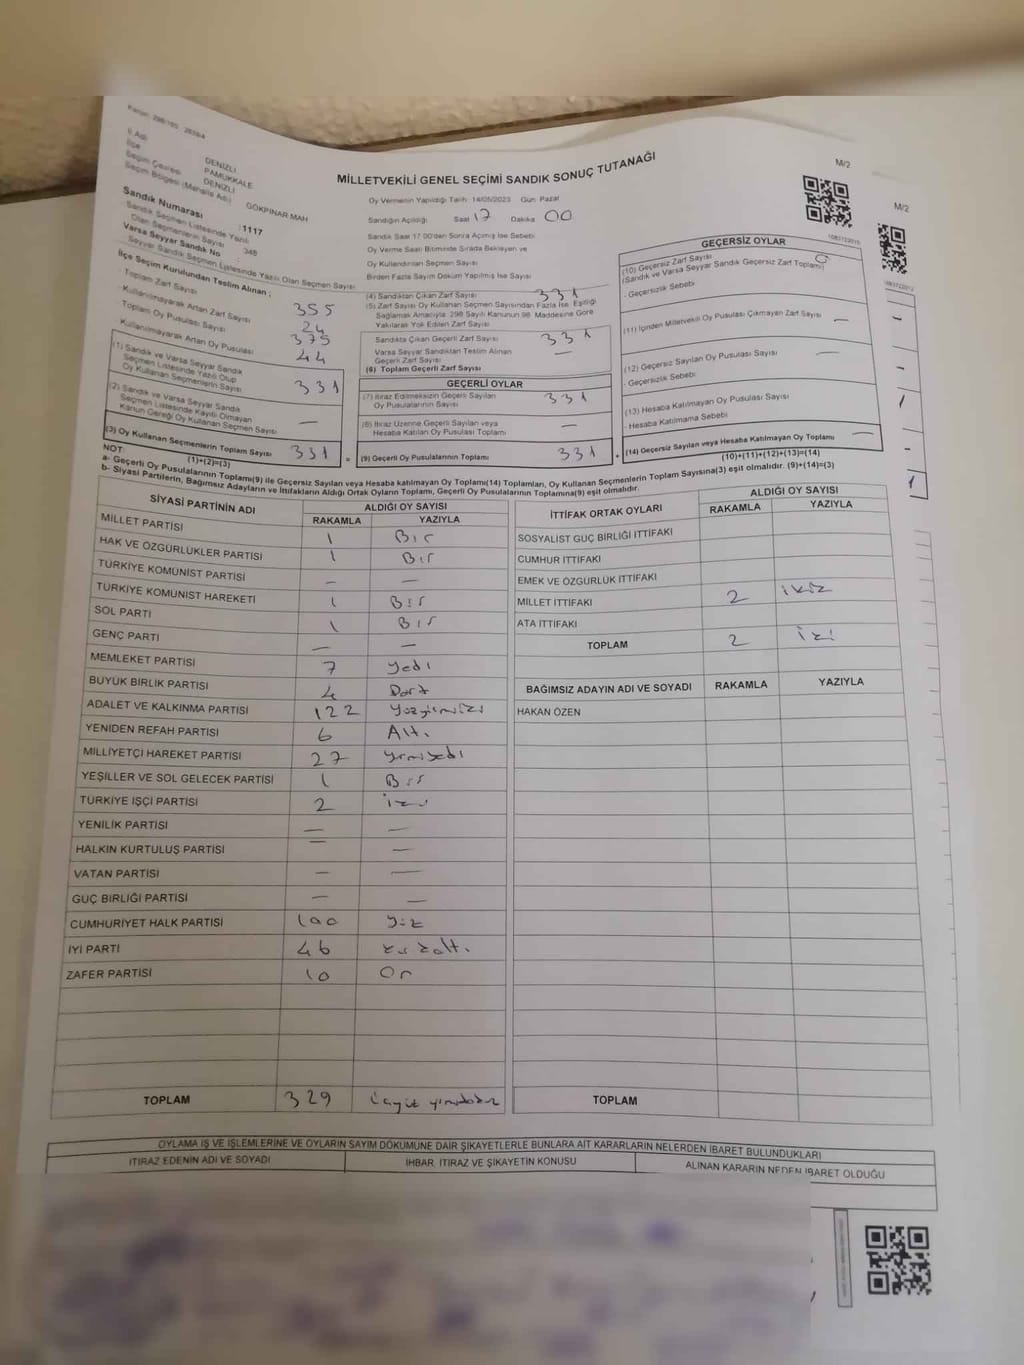 Kanun: 298/105 2839/4
İl Adı DENİZLİ
İlçe PAMUKKALE
Seçim Çevresi DENİZLİ
Seçim Bölgesi (Mahalle Adı) GÖKPINAR MAH
Sandık Numarası :1117
Sandık Seçmen Listesinde Yazılı
Olan Seçmenlerin Sayısı : 348
Varsa Seyyar Sandık No :
Seyyar Sandık Seçmen Listesinde Yazılı Olan Seçmen Sayısı
MİLLETVEKİLİ GENEL SEÇİMİ SANDIK SONUÇ TUTANAĞI
M/2
M/2
Oy Vermenin Yapıldığı Tarih: 14/05/2023 Gün: Pazar
Sandığın Açıldığı Saat 17 Dakika 00
Sandık Saat 17.00'den Sonra Açılmış İse Sebebi
Oy Verme Saati Bitiminde Sırada Bekleyen ve
Oy Kullandırılan Seçmen Sayısı
Birden Fazla Sayım Döküm Yapılmış İse Sayısı
İlçe Seçim Kurulundan Teslim Alınan ;
- Toplam Zarf Sayısı 355
- Kullanılmayarak Artan Zarf Sayısı 24
- Toplam Oy Pusulası Sayısı 375
Kullanılmayarak Artan Oy Pusulası 44
(1) Sandık ve Varsa Seyyar Sandık
Seçmen Listesinde Yazılı Olup
Oy Kullanan Seçmenlerin Sayısı 331
(2) Sandık ve Varsa Seyyar Sandık
Seçmen Listesinde Kayıtlı Olmayan
Kanun Gereği Oy Kullanan Seçmen Sayısı —
(3) Oy Kullanan Seçmenlerin Toplam Sayısı 331
(1)+(2)=(3)
(4) Sandıktan Çıkan Zarf Sayısı 331
(5) Zarf Sayısı Oy Kullanan Seçmen Sayısından Fazla İse, Eşitliği
Sağlamak Amacıyla, 298 Sayılı Kanunun 98. Maddesine Göre
Yakılarak Yok Edilen Zarf Sayısı
Sandıkta Çıkan Geçerli Zarf Sayısı 331
Varsa Seyyar Sandıktan Teslim Alınan
Geçerli Zarf Sayısı —
(6) Toplam Geçerli Zarf Sayısı
GEÇERLİ OYLAR
(7) İtiraz Edilmeksizin Geçerli Sayılan
Oy Pusulalarının Sayısı 331
(8) İtiraz Üzerine Geçerli Sayılan veya
Hesaba Katılan Oy Pusulası Toplamı —
= (9) Geçerli Oy Pusulalarının Toplamı 331 +
GEÇERSİZ OYLAR
(10) Geçersiz Zarf Sayısı
(Sandık ve Varsa Seyyar Sandık Geçersiz Zarf Toplamı)
- Geçersizlik Sebebi
(11) İçinden Milletvekili Oy Pusulası Çıkmayan Zarf Sayısı —
(12) Geçersiz Sayılan Oy Pusulası Sayısı —
- Geçersizlik Sebebi
(13) Hesaba Katılmayan Oy Pusulası Sayısı
- Hesaba Katılmama Sebebi
(14) Geçersiz Sayılan veya Hesaba Katılmayan Oy Toplamı —
(10)+(11)+(12)+(13)=(14)
NOT:
a- Geçerli Oy Pusulalarının Toplamı(9) ile Geçersiz Sayılan veya Hesaba katılmayan Oy Toplamı(14) Toplamları, Oy Kullanan Seçmenlerin Toplam Sayısına(3) eşit olmalıdır. (9)+(14)=(3)
b- Siyasi Partilerin, Bağımsız Adayların ve İttifakların Aldığı Ortak Oyların Toplamı, Geçerli Oy Pusulalarının Toplamına(9) eşit olmalıdır.
SİYASİ PARTİNİN ADI ALDIĞI OY SAYISI
RAKAMLA YAZIYLA
MİLLET PARTİSİ 1 Bir
HAK VE ÖZGÜRLÜKLER PARTİSİ 1 Bir
TÜRKİYE KOMÜNİST PARTİSİ — —
TÜRKİYE KOMÜNİST HAREKETİ 1 Bir
SOL PARTİ 1 Bir
GENÇ PARTİ — —
MEMLEKET PARTİSİ 7 yedi
BÜYÜK BİRLİK PARTİSİ 4 Dört
ADALET VE KALKINMA PARTİSİ 122 yüzyirmiiki
YENİDEN REFAH PARTİSİ 6 Altı
MİLLİYETÇİ HAREKET PARTİSİ 27 yirmiyedi
YEŞİLLER VE SOL GELECEK PARTİSİ 1 Bir
TÜRKİYE İŞÇİ PARTİSİ 2 iki
YENİLİK PARTİSİ — —
HALKIN KURTULUŞ PARTİSİ — —
VATAN PARTİSİ — —
GÜÇ BİRLİĞİ PARTİSİ — —
CUMHURİYET HALK PARTİSİ 100 yüz
İYİ PARTİ 46 kırkaltı
ZAFER PARTİSİ 10 On
TOPLAM 329 üçyüz yirmidokuz
İTTİFAK ORTAK OYLARI ALDIĞI OY SAYISI
RAKAMLA YAZIYLA
SOSYALİST GÜÇ BİRLİĞİ İTTİFAKI
CUMHUR İTTİFAKI
EMEK VE ÖZGÜRLÜK İTTİFAKI
MİLLET İTTİFAKI 2 iki
ATA İTTİFAKI
TOPLAM 2 iki
BAĞIMSIZ ADAYIN ADI VE SOYADI RAKAMLA YAZIYLA
HAKAN ÖZEN
TOPLAM
OYLAMA İŞ VE İŞLEMLERİNE VE OYLARIN SAYIM DÖKÜMÜNE DAİR ŞİKAYETLERLE BUNLARA AİT KARARLARIN NELERDEN İBARET BULUNDUKLARI
İTİRAZ EDENİN ADI VE SOYADI İHBAR, İTİRAZ VE ŞİKAYETİN KONUSU ALINAN KARARIN NEDEN İBARET OLDUĞU